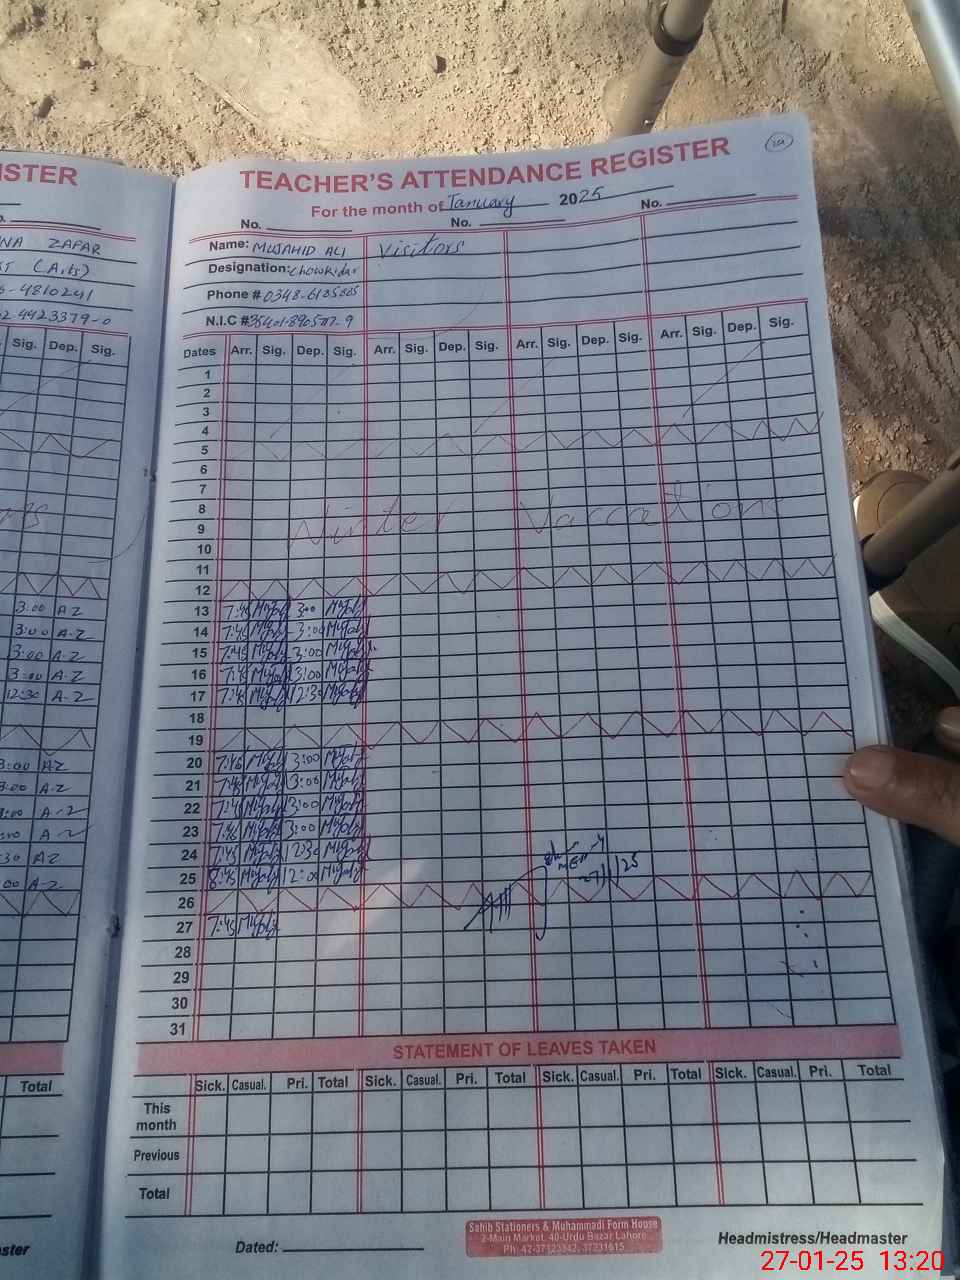 ISTER
NA ZAFAR
ST (Arts)
-4810241
02-4423379-0
Sig. Dep. Sig.
3:00 A-Z
3:00 A-Z
3:00 A-Z
3:00 A-Z
12:30 A-Z
3:00 A-Z
3:00 A-Z
3:00 A-Z
:00 A-Z
:30 A-Z
:00 A-Z
Total
ster
TEACHER'S ATTENDANCE REGISTER
For the month of January 2025
No. No. No.
Name: MUJAHID ALI Visitors
Designation: Chowkidar
Phone # 0348-6185805
N.I.C #
Dates Arr. Sig. Dep. Sig. Arr. Sig. Dep. Sig. Arr. Sig. Dep. Sig. Arr. Sig. Dep. Sig.
1
2
3
4
5
6
7
8
9 Winter Vaccations
10
11
12
13 7:45 3:00
14 7:45 3:00
15 7:45 3:00
16 7:45 3:00
17 7:45 12:30
18
19
20 7:45 3:00
21 7:45 3:00
22 7:45 3:00
23 7:45 3:00
24 7:45 12:30
25 8:45 12:00
26
27 7:45
27/1/25
28
29
30
31
STATEMENT OF LEAVES TAKEN
Sick. Casual. Pri. Total Sick. Casual. Pri. Total Sick. Casual. Pri. Total Sick. Casual. Pri. Total
This month
Previous
Total
Dated:
Sahib Stationers & Muhammadi Form House
2-Main Market, 40-Urdu Bazar Lahore
Ph: 42-37123342, 37231615
Headmistress/Headmaster
27-01-25 13:20